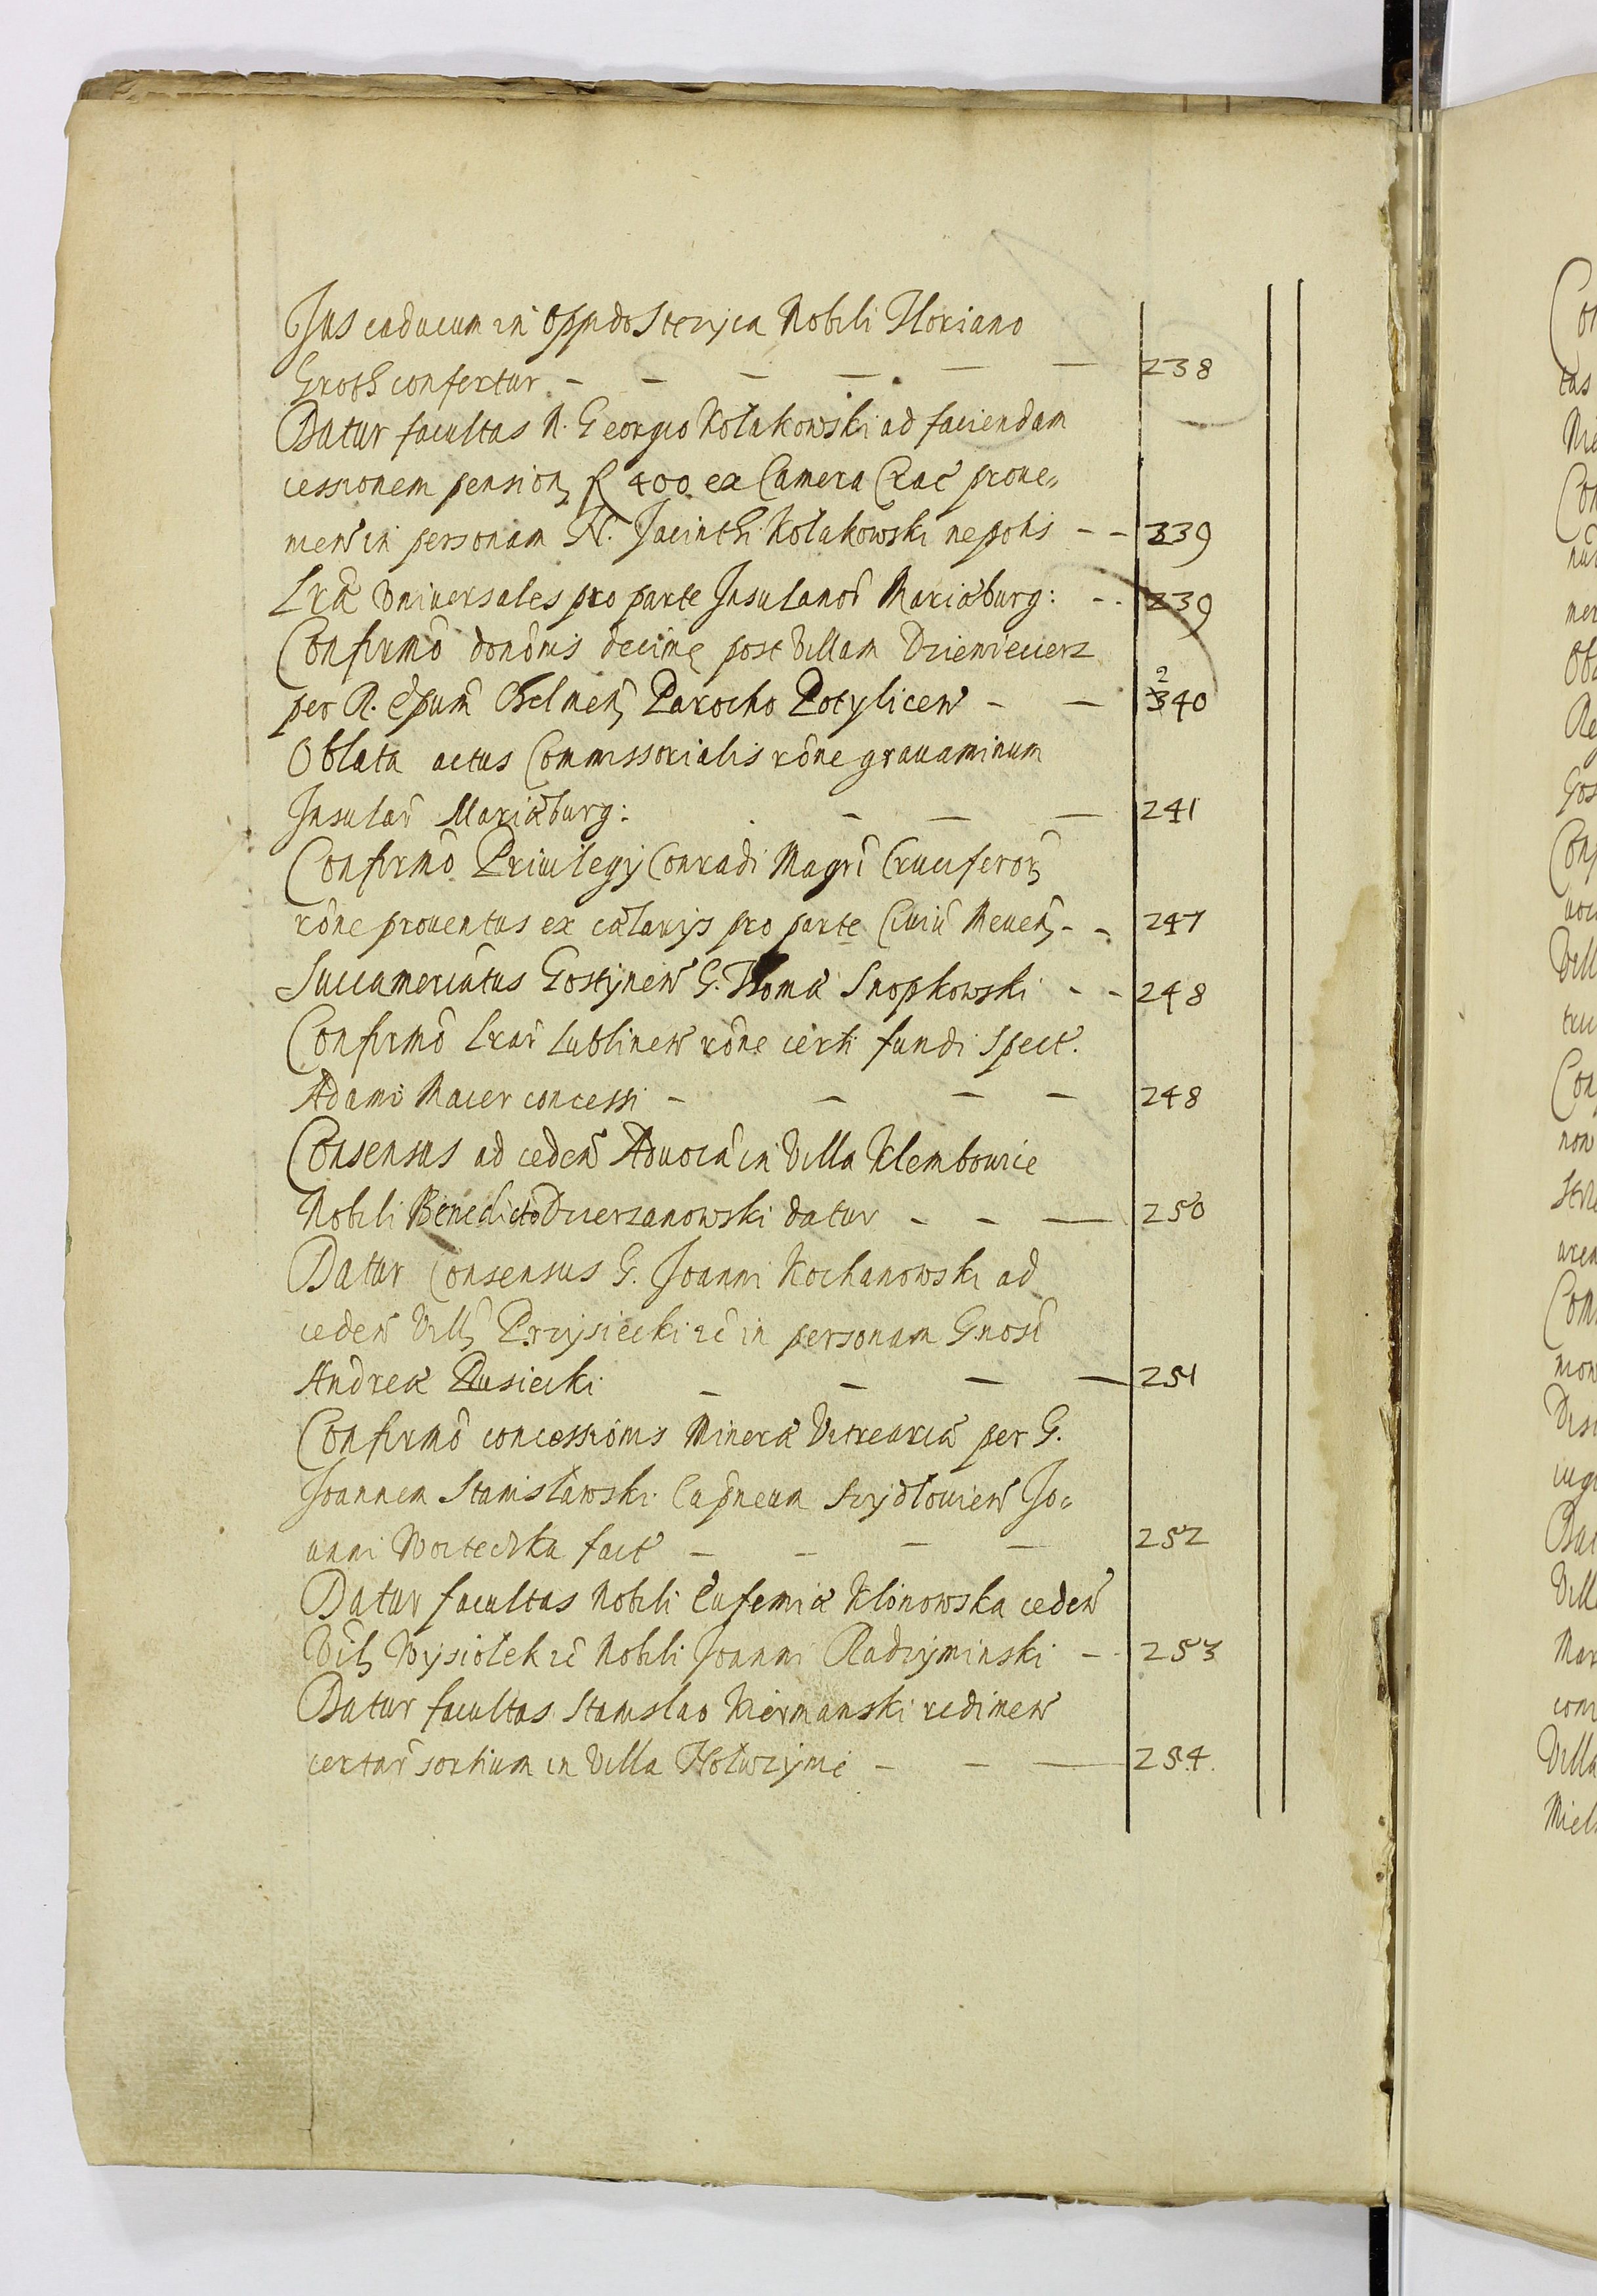 Jus caducum in Oppido Steryca Nobili Floriano
Groth confertur - - - - - - 238
Datur facultas N. Georgio Kołakowski ad faciendam
cessionem pension 400 ex Camera Crac proue,,
nien in personam N. Jacinthi Kołakowski nepotis - - 239
Lrae Vniuersales pro parte Insulanor Mariaeburg: - - 239
Confirmo dononis decime post Villam
per R. Epum Chelmen Parocho Potylicen - - 240
Oblata actus Commissorialis rone grauaminum
Insular Mariaeburg: - - - 241
Confirmo Priuilegij Conradi Magri Cruciferor
rone prouentus ex pro parte Ciuiu Meuen - - 247
Succameriatus Gostynen G. Thomae Snopkowski - - 248
Confirmo Lrar Lublinen rone certi fundi Spect.
Adamo Macer concessi - - - - 248
Consensus ad ceden Aduocia in Villa Klembowice
Nobili Benedicto Dzierzanowski datur - - - 250
Datur Consensus G. Joanni Kochanowski ad
ceden Vill Przysiecki in personam Gnosi
Andreae Rusiecki - - - - 251
Confirmo concessionis Minerae Vitreariae per G.
Joannem Stanisławski Capneum Szydłouien Jo,,
anni fact - - - - 252
Datur facultas Nobili Eufemiae Klonowska ceden
Wysiołek Nobili Joanni Radzyminski - - 253
Datur facultas Stanislao Niermanski redimen
certar sortium in Villa - - - 254.
Con